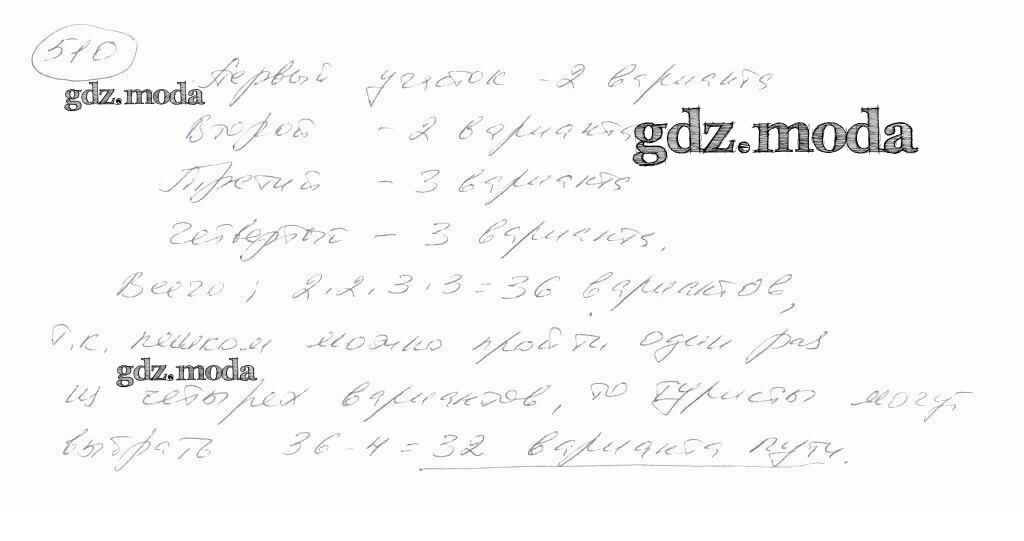 510
Первый участок - 2 варианта
gdz.moda
Второй - 2 варианта
gdz.moda
Третий - 3 варианта
Четвертый - 3 варианта.
Всего; 2.2.3.3 = 36 вариантов,
т.к. пешком можно пройти один раз
gdz.moda
из четырех вариантов, то туристы могут
выбрать 36-4 = 32 варианта пути.